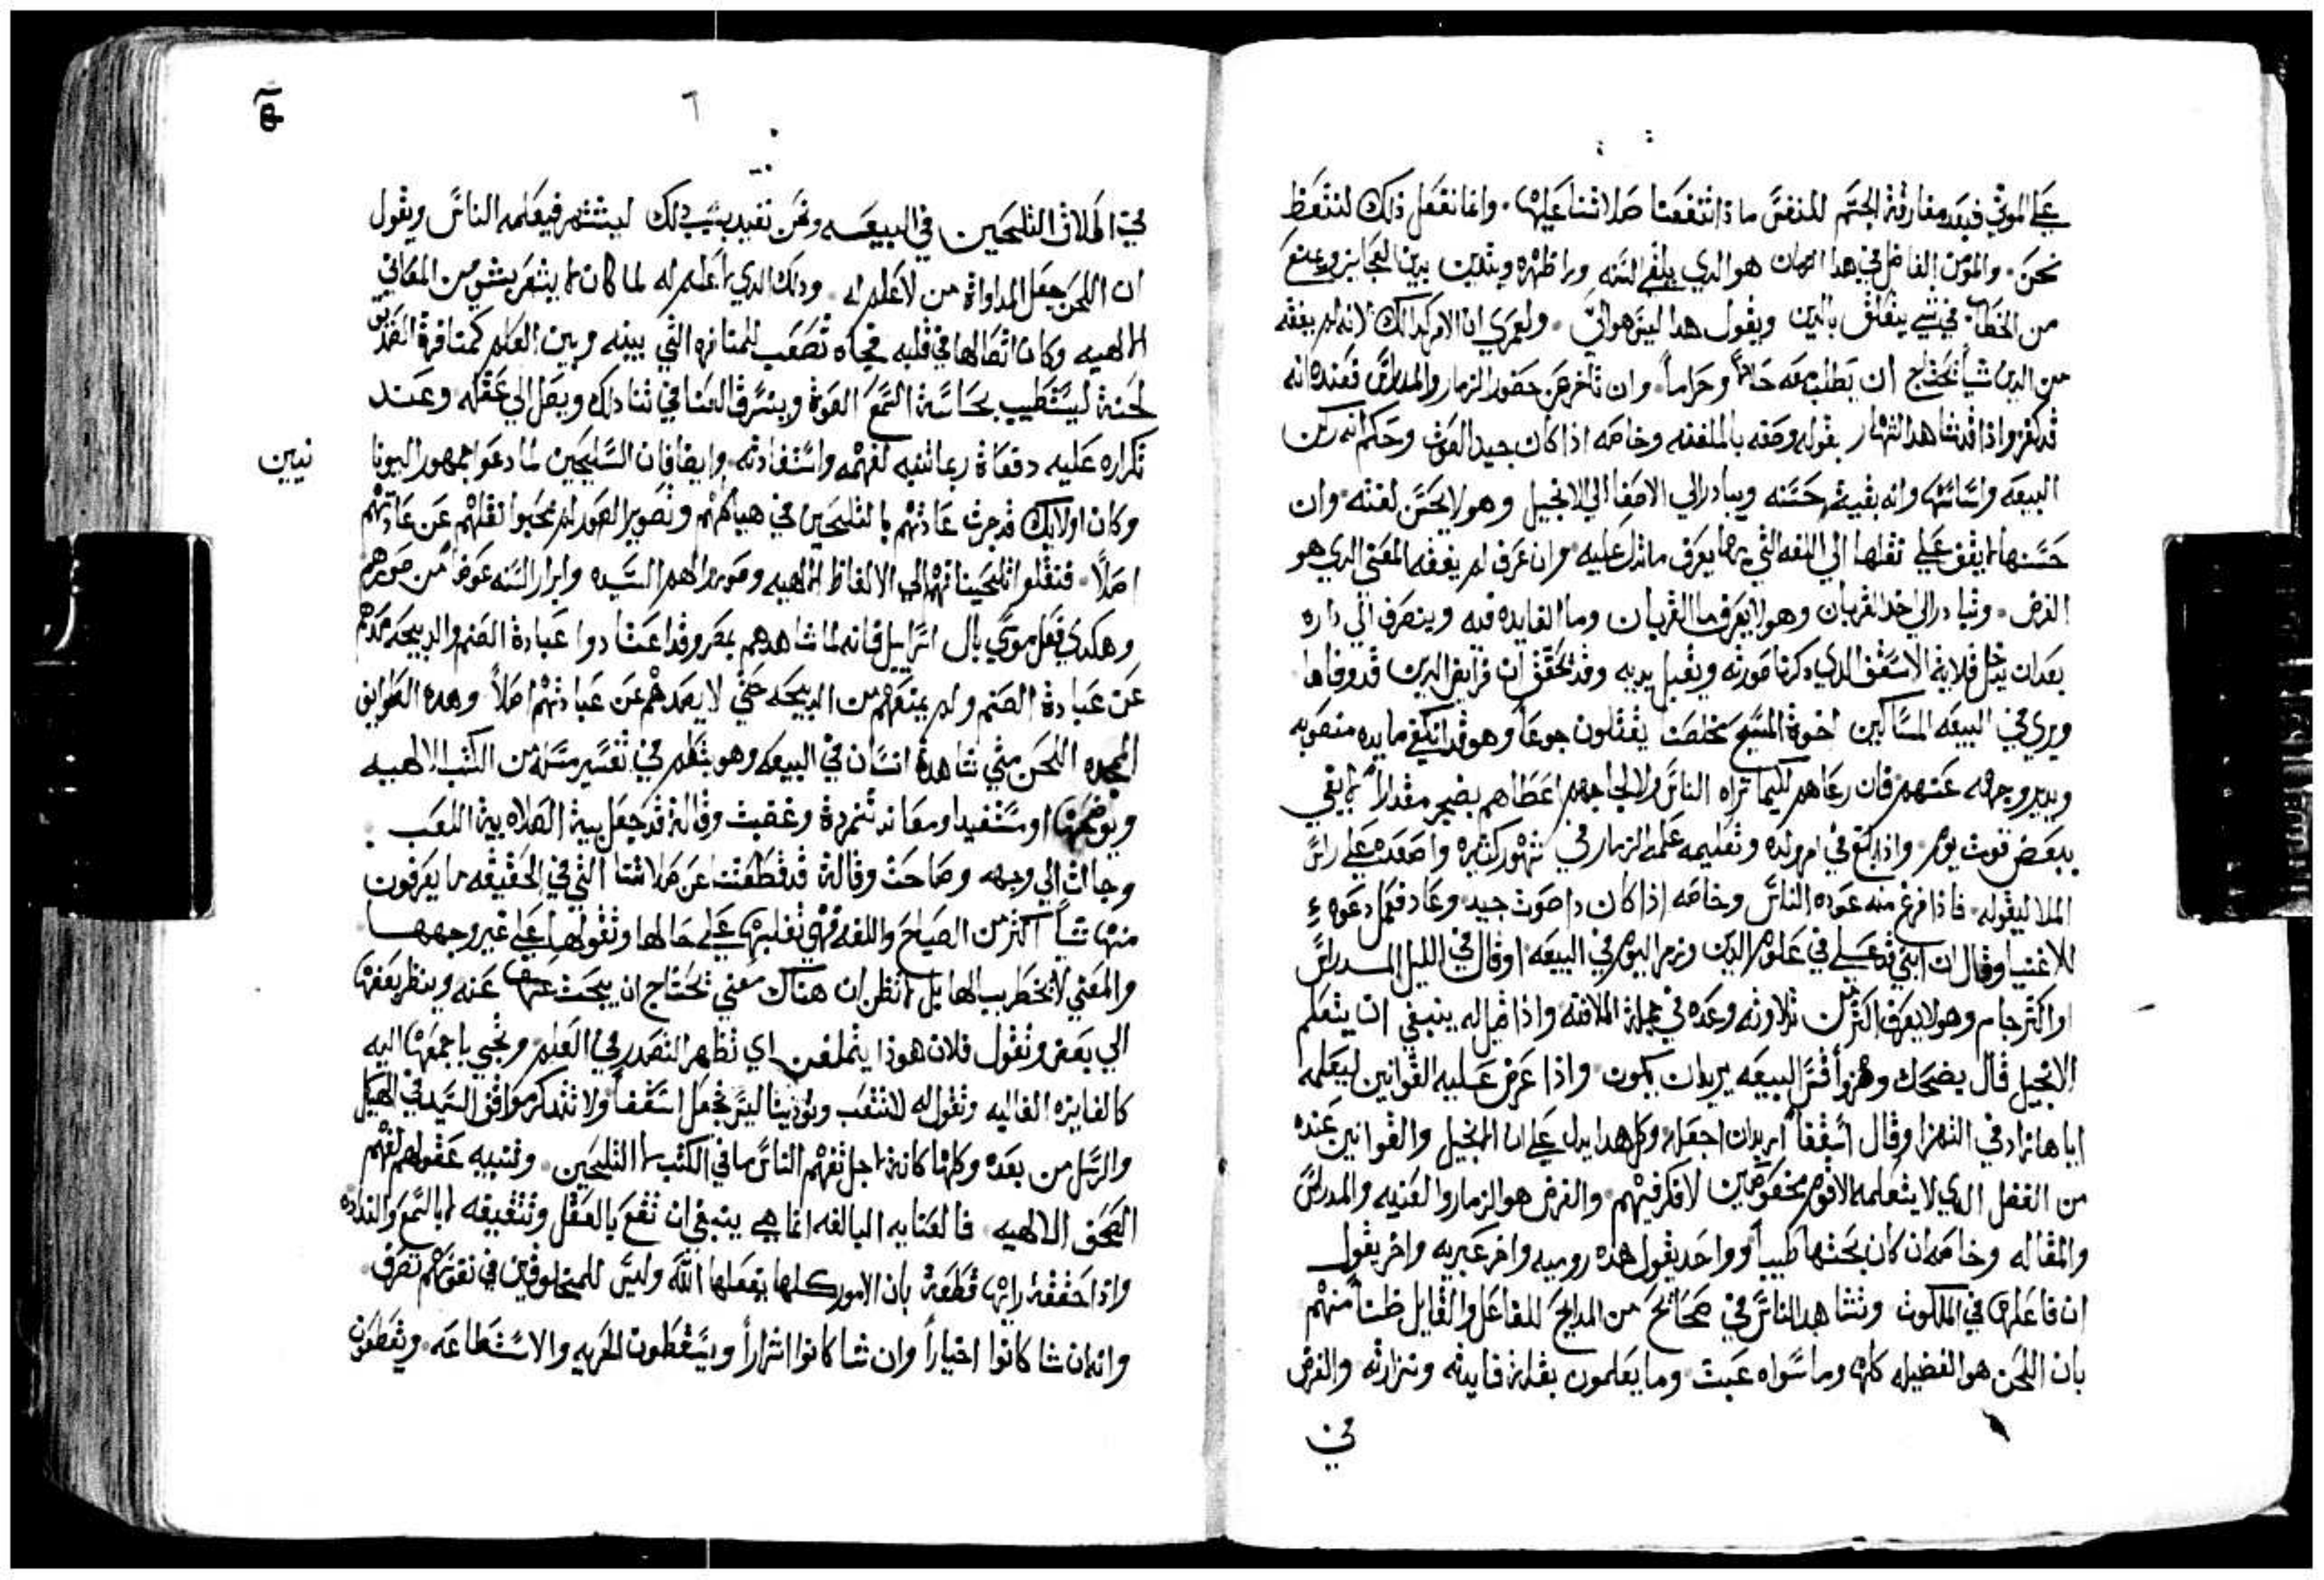 علي الموتي فبعد مفارقة الجسم للنفس ماذا تنفعنا صلاتنا عليها. وانما نفعل ذلك لنتعظ
نحن. والمؤمن الفاضل في هذا الزمان هو الذي يلغي السنه ورا ظهره ويتدين بدين العجايز ويمنع
من الخطا في شي يتعلق بالدين ويقول هذا ليس هو الي. ولعمري ان الامر كذالك لانه لم يفقه
من الدين شيا تحتاج ان يطلب معه حلالا وحراماً. وان تاخر عن حضور الزمار والمدراش فعنده انه
قد كفر واذا قد شاهد النهار بقوله وصفه بالملفنه وخاصه اذا كان جيد الصوت وحكم انه ركن
البيعه واساسها وانه بقيه حسنه ويبادر الي الاصغا الي الانجيل وهو لا يحسن لغته وان
حسنها لا يقف علي نقلها الي اللغه التي بها يعرف ما تدل عليه وان عرف لم يفقه المعني الذي هو
الغرض. وتبادر الي اخذ القربان وهو لا يعرف ما القربان وما الفايده فيه وينصرف الي داره
بعد ان يدخل قلاية الاسقف الذي ذكرنا صورته ويقبل يديه وقد تحقق ان فرايض الدين قد وفاها
ويري في البيعه المساكين اخوة المسيح مخلصنا يقتلون جوعا وهو قد انكفي مايده منصوبه
ويدير وجهه عنهم فان رعاهم لكيما تراه الناس ولالحاجهم اعطاهم بضجر مقدالا لا يفي
ببعض قوت يوم. واذا بلغ في ام ولده وتعليمه علمه الزمار في شهور كثيره واصعده علي راس
الملا ليقوله. فاذا فرغ منه عوده الناس وخاصه اذا كان ذا صوت جيد وعاد فعمل دعوه
للاغنيا وقال ان ابني قد علي في علوم الدين وزمر اليوم في البيعه اوقال في الليل المدراش
او اكثر جام وهو لا يعرف اكثر من تلاوته وعده في جملة الملافنه واذا قيل له ينبغي ان يتعلم
الانجيل قال يضحك وهزوا قس البيعه يريدان يكون واذا عرض عليه القوانين ليعلمه
اياها زاد في التهزا وقال أسقفا اريدان اجعله وكل هذا يدل علي ان الانجيل والقوانين عنده
من الفضل الذي لا يتعلمه الا قوم مخصوصين لا فكر فيهم والغرض هو الزمار والعنيه والمدراش
والمقاله وخاصه ان كان لحنها طيبا وواحد يقول هذه روميه واخر عبريه واخر يقول
ان فاعلها في الملكوت وتشاهد الناس في صحائح من المدايح للفاعل والقايل ظنا منهم
بان اللحن هو الفضيله كلها وما سواه عبث وما يعلمون بقلة فايدته ونزارته والغرض
في
٦
في اطلاق التلحين في البيعه ونحن نفيد بسبب ذلك ليشتهر فيعلمه الناس ويقول
ان اللحن جعل المداواة من لا علم له. وذلك الذي لا علم له لما كان لا يشعر بشي من المعاني
الالهيه وكان اتصالها في قلبه مجاه تصعب للمنافره التي بينه وبين العلم كمنافرة الضدين
لحنة ليستطيب بحاسة السمع الصوة ويسرق المعنا في تنا ذلك ويصل الي عقله وعند
تكراره عليه دفعاة ربما تنبه لفهمه واستفادته. وايضا فان السليحين لما دعوا جمهور اليونا
نيين
وكان اولايك قد جرت عادتهم بالتلحين في هياكلهم وتصوير الصور لم يحبوا نقلهم عن عادتهم
اصلاً. فنقلوا تلحيناتهم الي الالفاظ الالهيه وصوروا لهم السيده وابرار السنه عوضا من صورهم
وهكذي فعل موسي بال اسراييل فانه لما شاهدهم بمصر وقد اعتادوا عبادة الصنم والذبيحه صدهم
عن عبادة الصنم ولم يمنعهم من الذبيحه حتي لا يصدهم عن عباداتهم اصلاً وهذه الطوايف
اللحن متي شاهدة انسان في البيعه وهو يتكلم في تفسير مسله من الكتب الالهيه
ويوضحها او مستفيدا ومعاند تنمردة وغضبت وقالة قد جعل بيت الصلاه بيت اللعب.
وجاات الي وجهه وصاحت وقالة قد قطعتنا عن صلاتنا التي في الحقيقه لا يعرفون
منها شيا اكثر من الصياح واللغه فهي تغلبها علي حالها وتقولها علي غير وجهها
والمعني لا يخطر ببالها بل لا تظن ان هناك معني تحتاج ان يبحث عنه وينظر بعضها
الي بعض وتقول فلان هوذا يتملفن اي تظهر التصدر في العلم وتجي باجمعها اليه
كالفايزه الغاليه وتقول له لا تتعب وتوذينا ليس تجعل اسقفا ولا تتذكر مواقف السيد في الهيكل
والرسل من بعده وكلها كانة لاجل تفهم الناس ما في الكتب لا التلحين. وتنبيه عقولهم لفهم
الحق الالهيه. فالعنايه البالغه انما هي ينبغي ان تقع بالعقل وتثقيفه لا بالسمع والتذاذه
واذا حققة رايها قطعة بان الامور كلها يفعلها الله وليس للمخلوقين في نفوسهم تصرف.
وانه ان شا كانوا اخياراً وان شا كانوا اشراراً ويسقطون الحريه والاستطاعه. ويقطعون